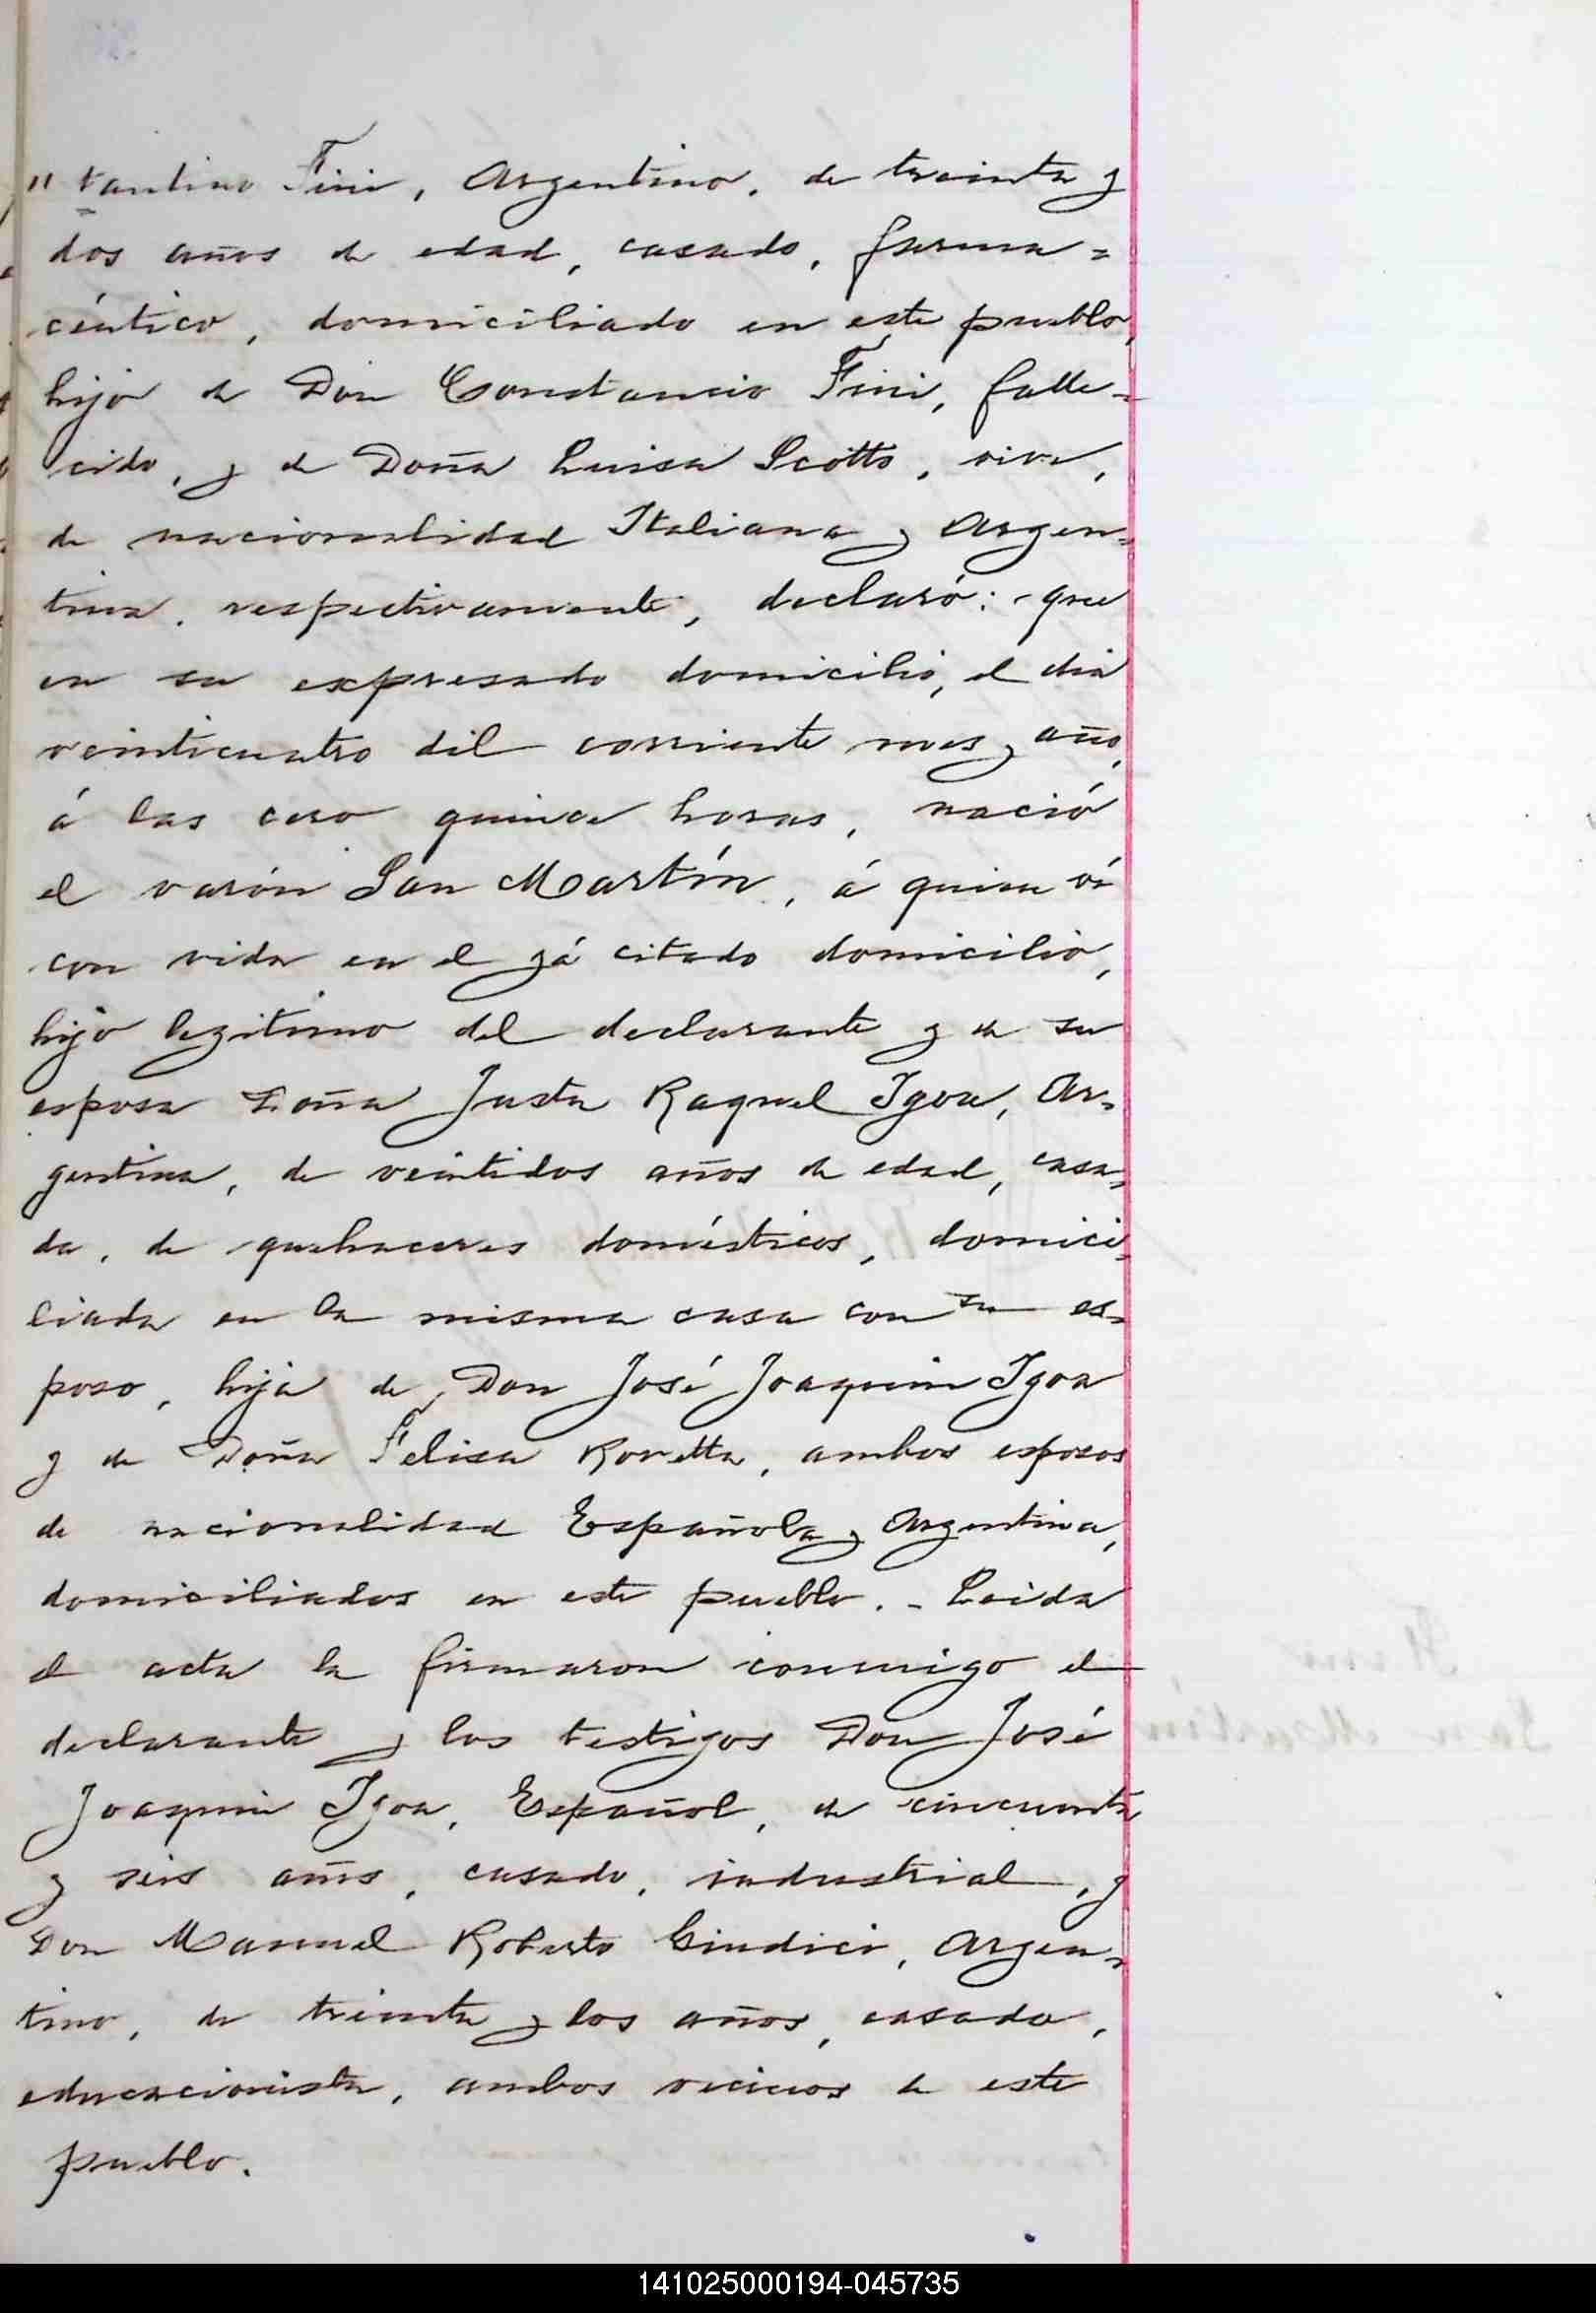 " tantino Fini, Argentino, de treinta y
dos años de edad, casado, farma=
céutico, domiciliado en este pueblo,
hijo de Don Constancio Fini, falle-
cido, y de Doña Luisa Scotto, viva,
de nacionalidad Italiana y Argen-
tina, respectivamente, declaró: que
en su expresado domicilio, el dia
veinticuatro del corriente mes y año,
á las cero quince horas, nació
el varón San Martín, á quien ví
con vida en el yá citado domicilio,
hijo legitimo del declarante y de su
esposa Doña Justa Raquel Igoa, Ar-
gentina, de veintidos años de edad, casa-
da, de quehaceres domésticos, domici-
liada en la misma casa con su es-
poso, hija de Don José Joaquin Igoa
y de Doña Felisa Rovetta, ambos esposos
de nacionalidad Española y Argentina,
domiciliados en este pueblo. - Leida
el acta la firmaron conmigo el
declarante y los testigos Don José
Joaquin Igoa, Español, de cincuenta
y seis años, casado, industrial, y
Don Manuel Roberto Giudici, Argen-
tino, de treinta y dos años, casado,
educacionista, ambos vecinos de este
pueblo.
141025000194-045735